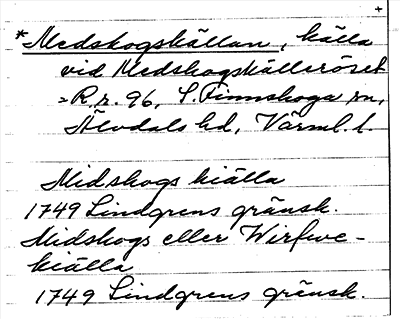 +
*Medskogskällan, källa
vid Medskogskällsröset
= R.r. 96, S. Finnskoga sn,
Älvdals hd, Värml. l.
Midskogs kiälla
1749 Lindgrens gränsk.
Midskogs eller Wirfwe-
kiälla
1749 Lindgrens gränsk.